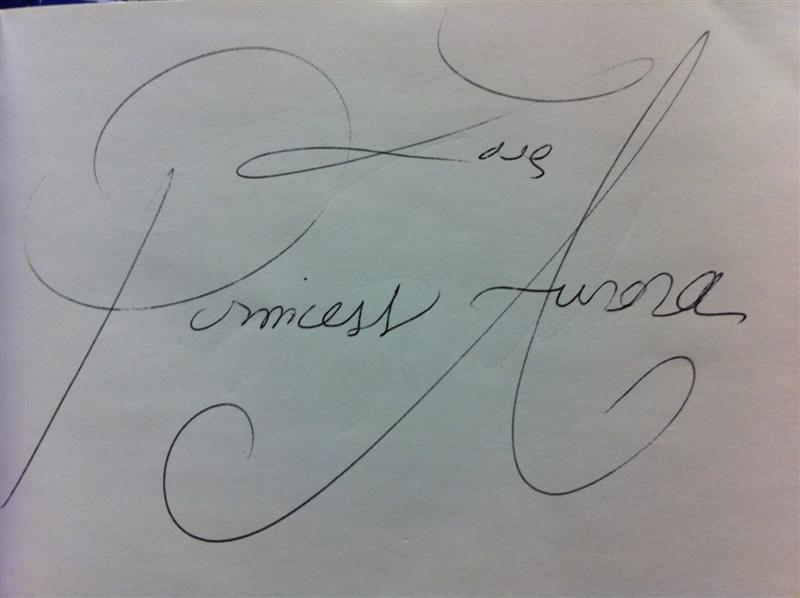 Love
Princess Aurora